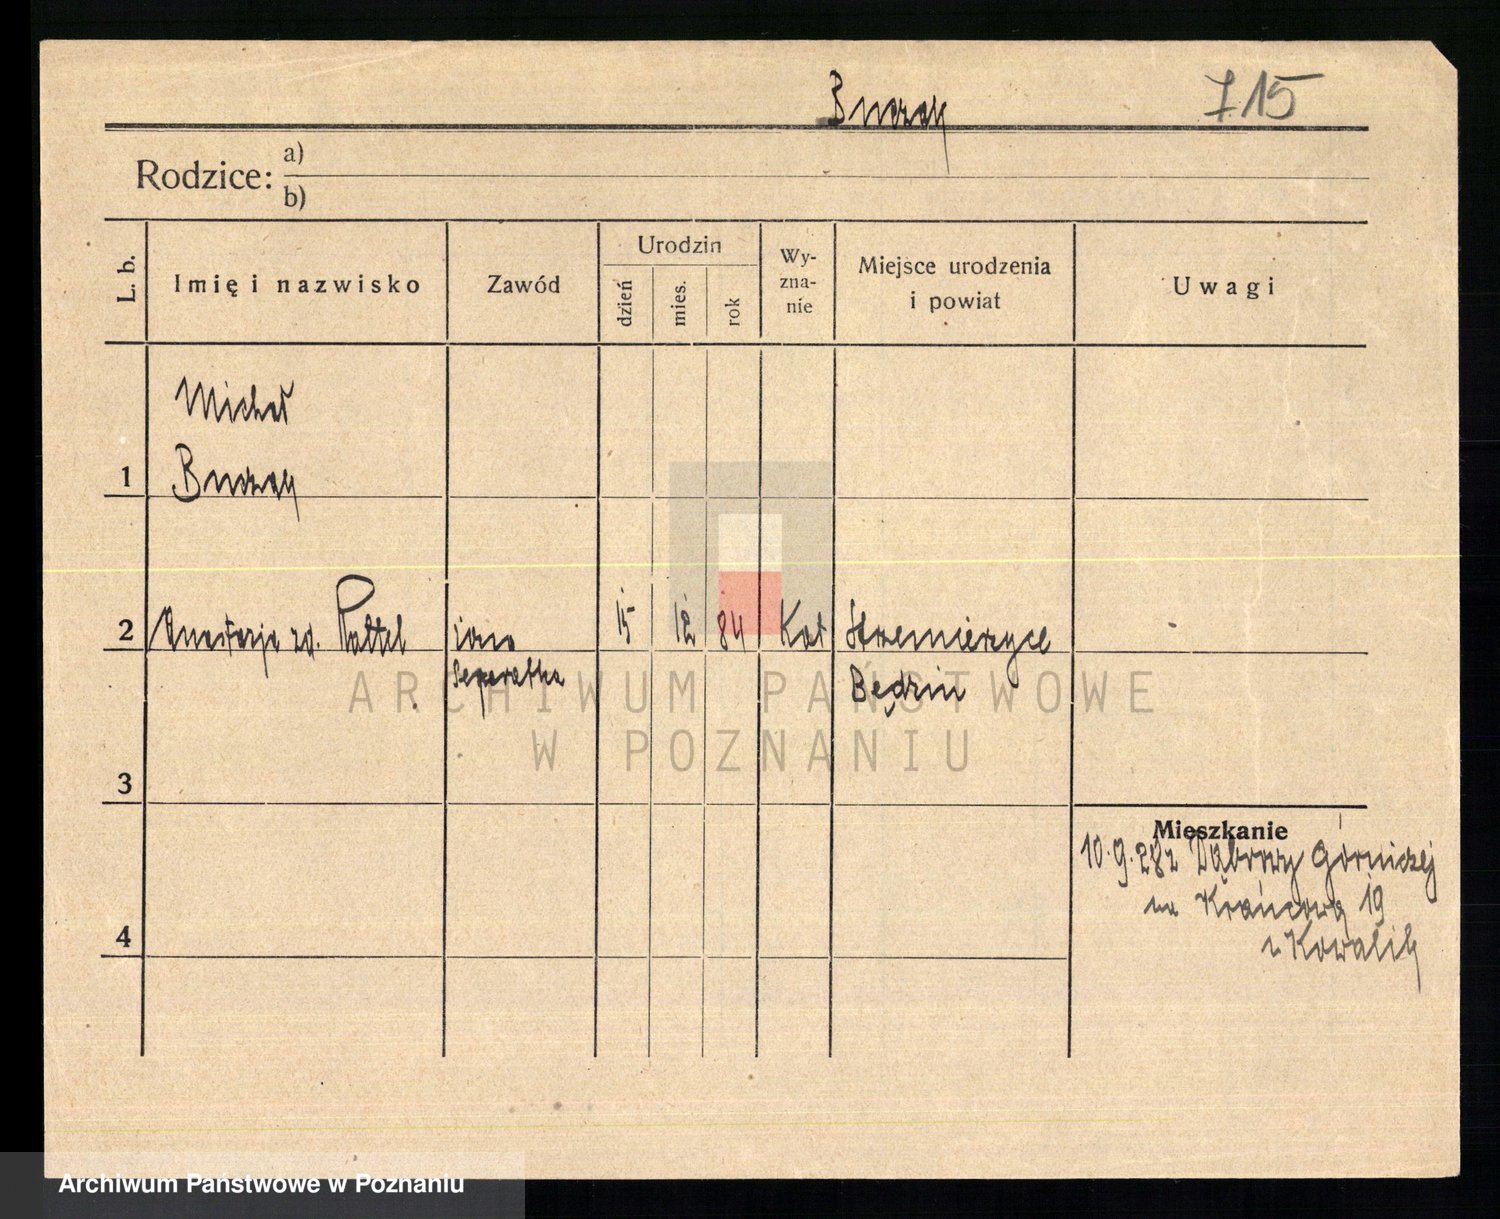 7.15
Rodzice: a)
b)
L. b.
Imię i nazwisko
Zawód
Urodzin
dzień
mies.
rok
Wy-
zna-
nie
Miejsce urodzenia
i powiat
Uwagi
Michał
1
2 zd. 15 12 84 Kat Strzemieszyce
Separatka
Będzin
3
Mieszkanie
10.9.28 z Dąbrowy Górniczej
na Krańcową 19
z Kowalik
4
ARCHIWUM PAŃSTWOWE
W POZNANIU
Archiwum Państwowe w Poznaniu